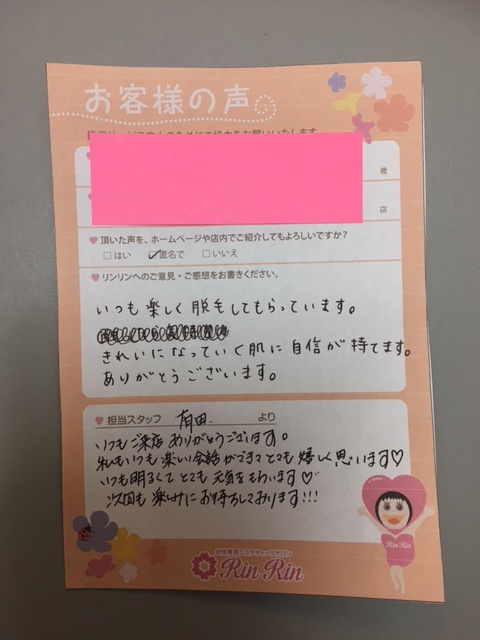 お客様の声
歳
店
頂いた声を、ホームページや店内でご紹介してもよろしいですか?
□はい ☑匿名で □いいえ
リンリンへのご意見・ご感想をお書きください。
いつも楽しく脱毛してもらっています。
きれいになっていく肌に自信が持てます。
ありがとうございます。
担当スタッフ 有田 より
いつもご来店ありがとうございます。
私もいつも楽しい会話ができてとても嬉しく思います♡
いつも明るくてとても元気をもらいます♡
次回も楽しみにお待ちしております!!!
Rin Rin
女性専用エステティックサロン
Rin Rin